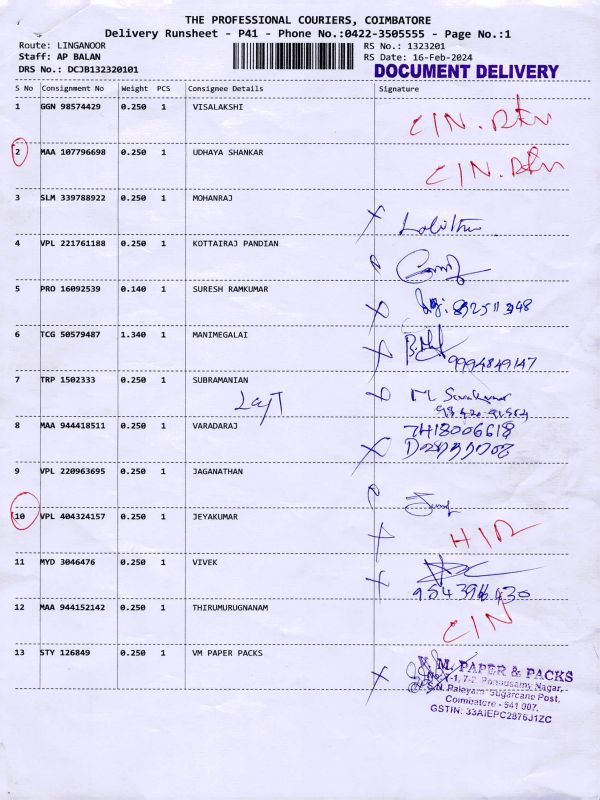 THE PROFESSIONAL COURIERS, COIMBATORE
Delivery Runsheet - P41 - Phone No.:0422-3505555 - Page No.:1
Route: LINGANOOR RS No.: 1323201
Staff: AP BALAN RS Date: 16-Feb-2024
DRS No.: DCJB132320101 DOCUMENT DELIVERY
S No Consignment No Weight PCS Consignee Details Signature
1 GGN 98574429 0.250 1 VISALAKSHI CIN.
2 MAA 107796698 0.250 1 UDHAYA SHANKAR CIN.
3 SLM 339788922 0.250 1 MOHANRAJ
4 VPL 221761188 0.250 1 KOTTAIRAJ PANDIAN
5 PRO 16092539 0.140 1 SURESH RAMKUMAR
6 TCG 50579487 1.340 1 MANIMEGALAI
9994849147
7 TRP 1502333 0.250 1 SUBRAMANIAN
8 MAA 944418511 0.250 1 VARADARAJ
9 VPL 220963695 0.250 1 JAGANATHAN
10 VPL 404324157 0.250 1 JEYAKUMAR
11 MYD 3046476 0.250 1 VIVEK
12 MAA 944152142 0.250 1 THIRUMURUGNANAM CIN
13 STY 126849 0.250 1 VM PAPER PACKS
M. PAPER & PACKS
7-1, 7-2, Ponnusamy Nagar,
S.N. Palayam Sugarcane Post,
Coimbatore - 641 007.
GSTIN: 33AIEPC2876J1ZC